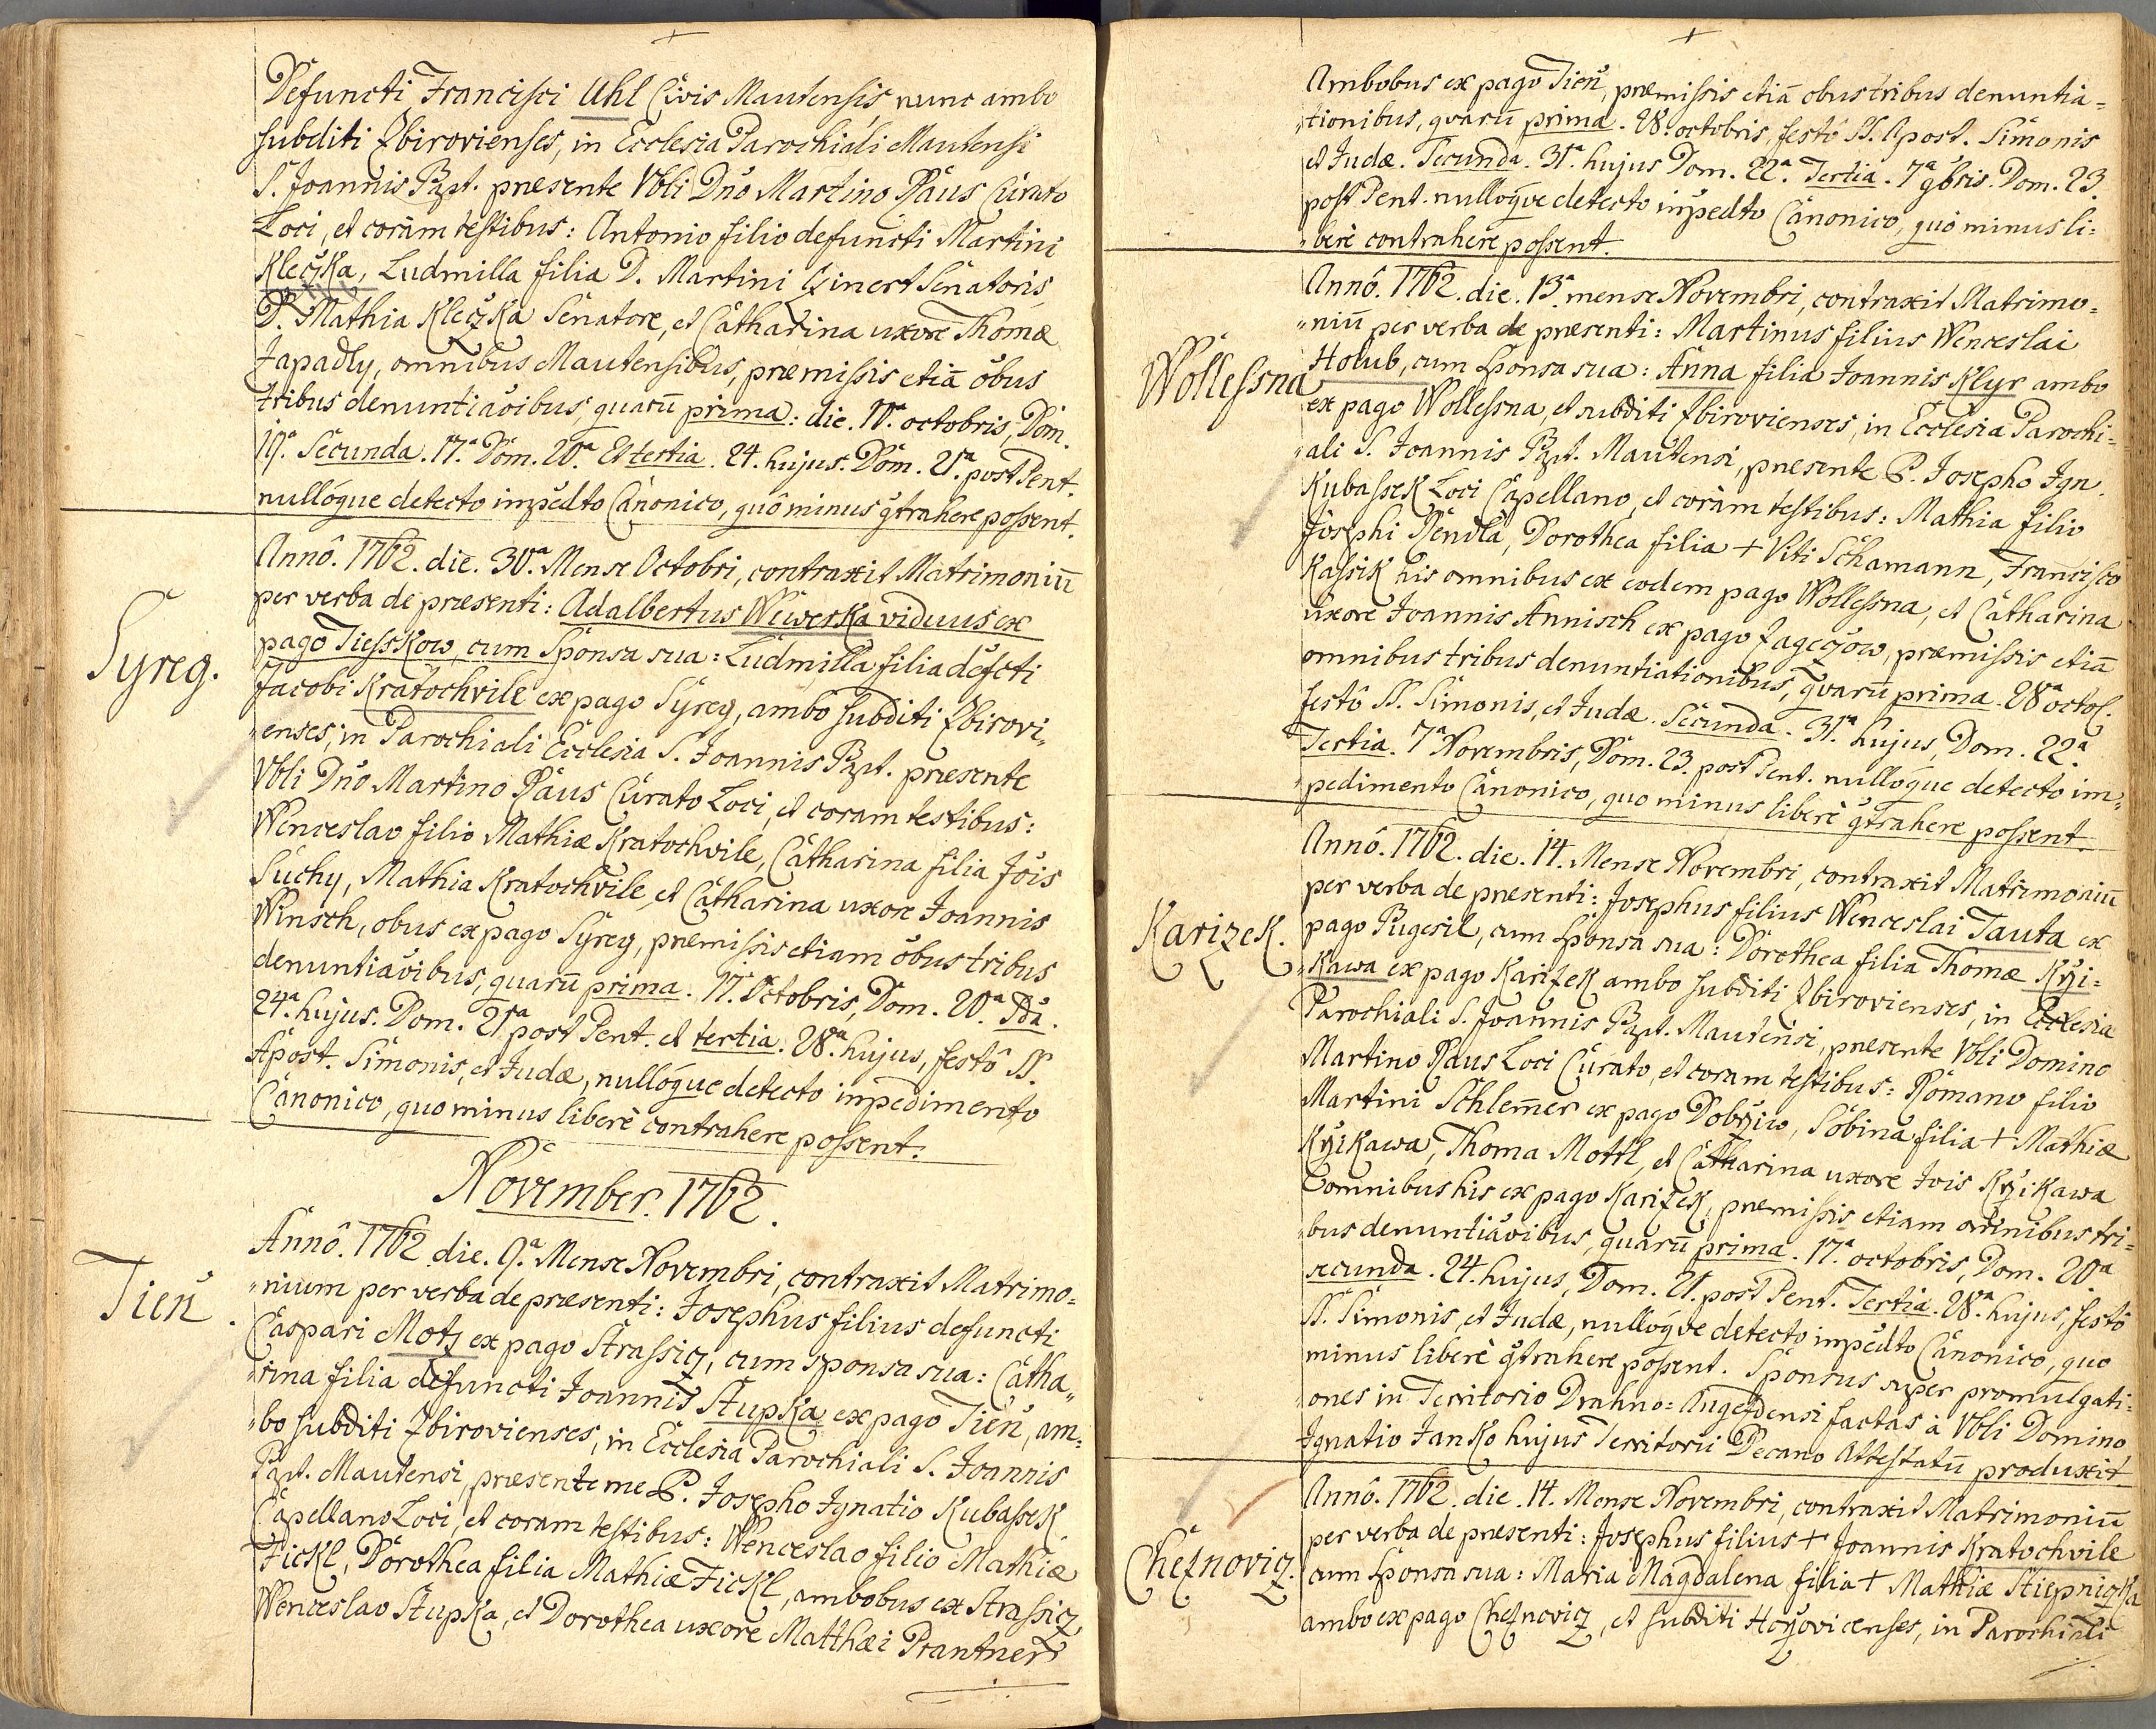 Defuncti Francisci Uhl Civis Mautensis, nunc ambo
subditi Zbirovienses, in Ecclesia Parochiali Mautensi
S. Joannis Bapt. praesente Vbli Dno Martino Paus Curato
Loci, et coram testibus: Antonio filio defuncti Martini
Kleczka, Ludmilla filia D. Martini Senatoris,
D. Mathia Kleczka Senatore, et Catharina uxore Thomae
Zapadly, omnibus Mautensibus, praemissis etiã obus
tribus denuntiaõibus, quarũ prima: die. 10ª octobris, Dom.
19ª. Secunda. 17ª Dom. 20ª. Et tertia. 24. hujus. Dom. 21ª. post Pent.
nullóque detecto impedto Canonico, quô minus gtrahere possent.
Syreg.
Annô. 1762. die. 30ª. Mense Octobri, contraxit Matrimoniũ
per verba de praesenti: Adalbertus Wewerka viduus ex
pago Tiesskow, cum Sponsa sua: Ludmilla filia defcti
Jacobi Kratochvile ex pago Syreg, ambo subditi Zbirovi„
„enses, in Parochiali Ecclesia S. Joannis Bapt. praesente
Vbli Dno Martino Paus Curato Loci, et coram testibus:
Wenceslao filio Mathiae Kratochvile, Catharina filia Jõis
Suchy, Mathia Kratochvile, et Catharina uxore Joannis
Winsch, obus ex pago Syreg, praemissis etiam obus tribus
denuntiaõibus, quarũ prima. 17. Octobris, Dom. 20ª. 2da.
24ª. hujus. Dom. 21ª post Pent. et tertia. 28ª. hujus, festô SS.
Apost. Simonis, et Judae, nullóque detecto inpedimento
Canonico, quo minus liberè contrahere possent.
November. 1762.
Tien.
Annô. 1762 die. 9ª. Mense Novembri, contraxit Matrimo=
„nium per verba de praesenti: Josephus filius defuncti
Caspari Motz ex pago Strassicz, cum sponsa sua: Catha„
„rina filia defuncti Joannis Stupka ex pago Tien, am=
„bo subditi Zbirovienses, in Ecclesia Parochiali S. Joannis
Bapt. Mautensi, praesente me P. Josepho Ignatio Kubassek
Capellano Loci, et coram testibus: Wenceslao filio Mathiae
Fickl, Dorothea filia Mathiae Fickl, ambobus ex Strassicz
Wenceslao Stupka, et Dorothea uxore Matthaei Prantner
Ambobus ex pago Tien, praemissis etiã obus tribus denuntia=
„tionibus, qvarũ prima. 28. octobris, festô SS. Apost. Simonis
et Judae. Secunda. 31ª. hujus Dom. 22ª. Tertia. 7ª 9bris. Dom. 23
post Pent. nullóqve detecto inpedto Canonico, quô minus li=
„berè contrahere possent.
Wollessna
Annô. 1762. die. 13ª mense Novembri, contraxit Matrimo=
„niũ per verba de praesenti: Martinus filius Wenceslai
Holub, cum Sponsa sua: Anna filia Joannis Klyr ambo
ex pago Wollessna, et subditi Zbirovienses, in Ecclesia Parochi=
„ali S. Joannis Bapt. Mautensi, praesente P. Josepho Ign.
Kubassek Loci Capellano, et coram testibus: Mathia filio
Josephi Rendla, Dorothea filia + Viti Schamann, Francisco
Kassik his omnibus ex eodem pago Wollessna, et Catharina
uxore Joannis Annisch ex pago Zageczow, praemissis etiã
omnibus tribus denuntiationibus, qvarũ prima. 28ª octob.
festô SS. Simonis, et Judae. Secunda. 31ª hujus, Dom. 22ª.
Tertia. 7ª Novembris, Dom. 23. post Pent. nullóque detecto im„
„pedimento Canonico, quo minus liberè gtrahere possent.
Karizek.
Annô. 1762. die. 14. Mense Novembri, contraxit Matrimoniũ
per verba de praesenti: Josephus filius Wenceslai Tauta ex
pago Pugesil, cum Sponsa sua: Dorothea filia Thomae Krzi=
„kawa ex pago Karizek ambo subditi Zbirovienses, in Ecclesia
Parochiali S. Joannis Bapt. Mautensi, praesente Vbli Domino
Martino Paus Loci Curato, et coram testibus: Romano filio
Martini Schlem̄er ex pago Dobrziw, Sobina filia + Mathiae
Krzikawa, Thoma Mottl, et Catharina uxore Jois Krzikawa
omnibus his ex pago Karizek, praemissis etiam omnibus tri=
„bus denuntiaõibus, quarũ prima. 17ª octobris, Dom. 20ª
secunda. 24. hujus, Dom. 21. post Pent. Tertia. 28ª. hujus, festô
SS. Simonis, et Judae, nullóqve detecto impedto Canonico, quo
minus liberè gtrahere possent. Sponsus super promulgati=
„ones in Territorio Drahno=Augezdensi factas à Vbli Domino
Ignatio Janko hujus Territorii Decano Attestatũ produxit
Cheznovicz.
Annô. 1762. die. 14. Mense Novembri, contraxit Matrimoniũ
per verba de praesenti: Josephus filius + Joannis Kratochvile
cum Sponsa sua: Maria Magdalena filia + Mathiae Stiepniczka
ambo ex pago Cheznovicz, et subditi Horzovicenses, in Parochiali